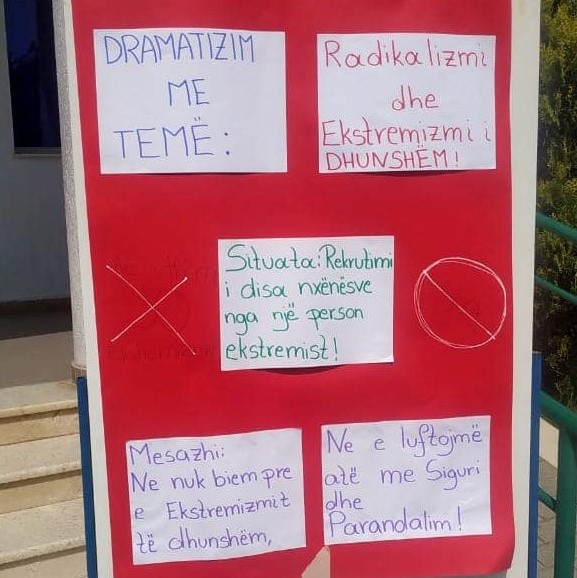 DRAMATIZIM
ME
TEMË:
Radikalizmi
dhe
Ekstremizmi i
DHUNSHËM!
Situata: Rekrutimi
i disa nxënësve
nga një person
ekstremist!
Mesazhi:
Ne nuk biem pre
e Ekstremizmit
të dhunshëm,
Ne e luftojmë
atë me Siguri
dhe
Parandalim!